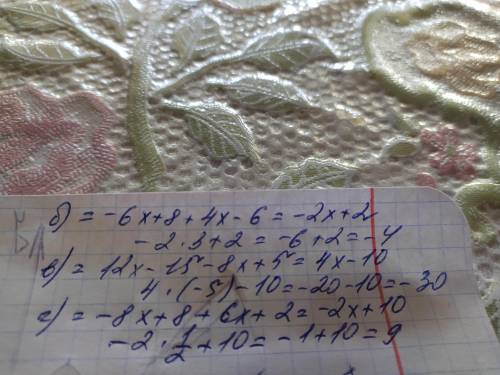 б) = -6x+8+4x-6=-2x+2
-2·3+2=-6+2=-4
в) = 12x-15-8x+5=4x-10
4·(-5)-10=-20-10=-30
г) = -8x+8+6x+2=-2x+10
-2·1/2+10=-1+10=9